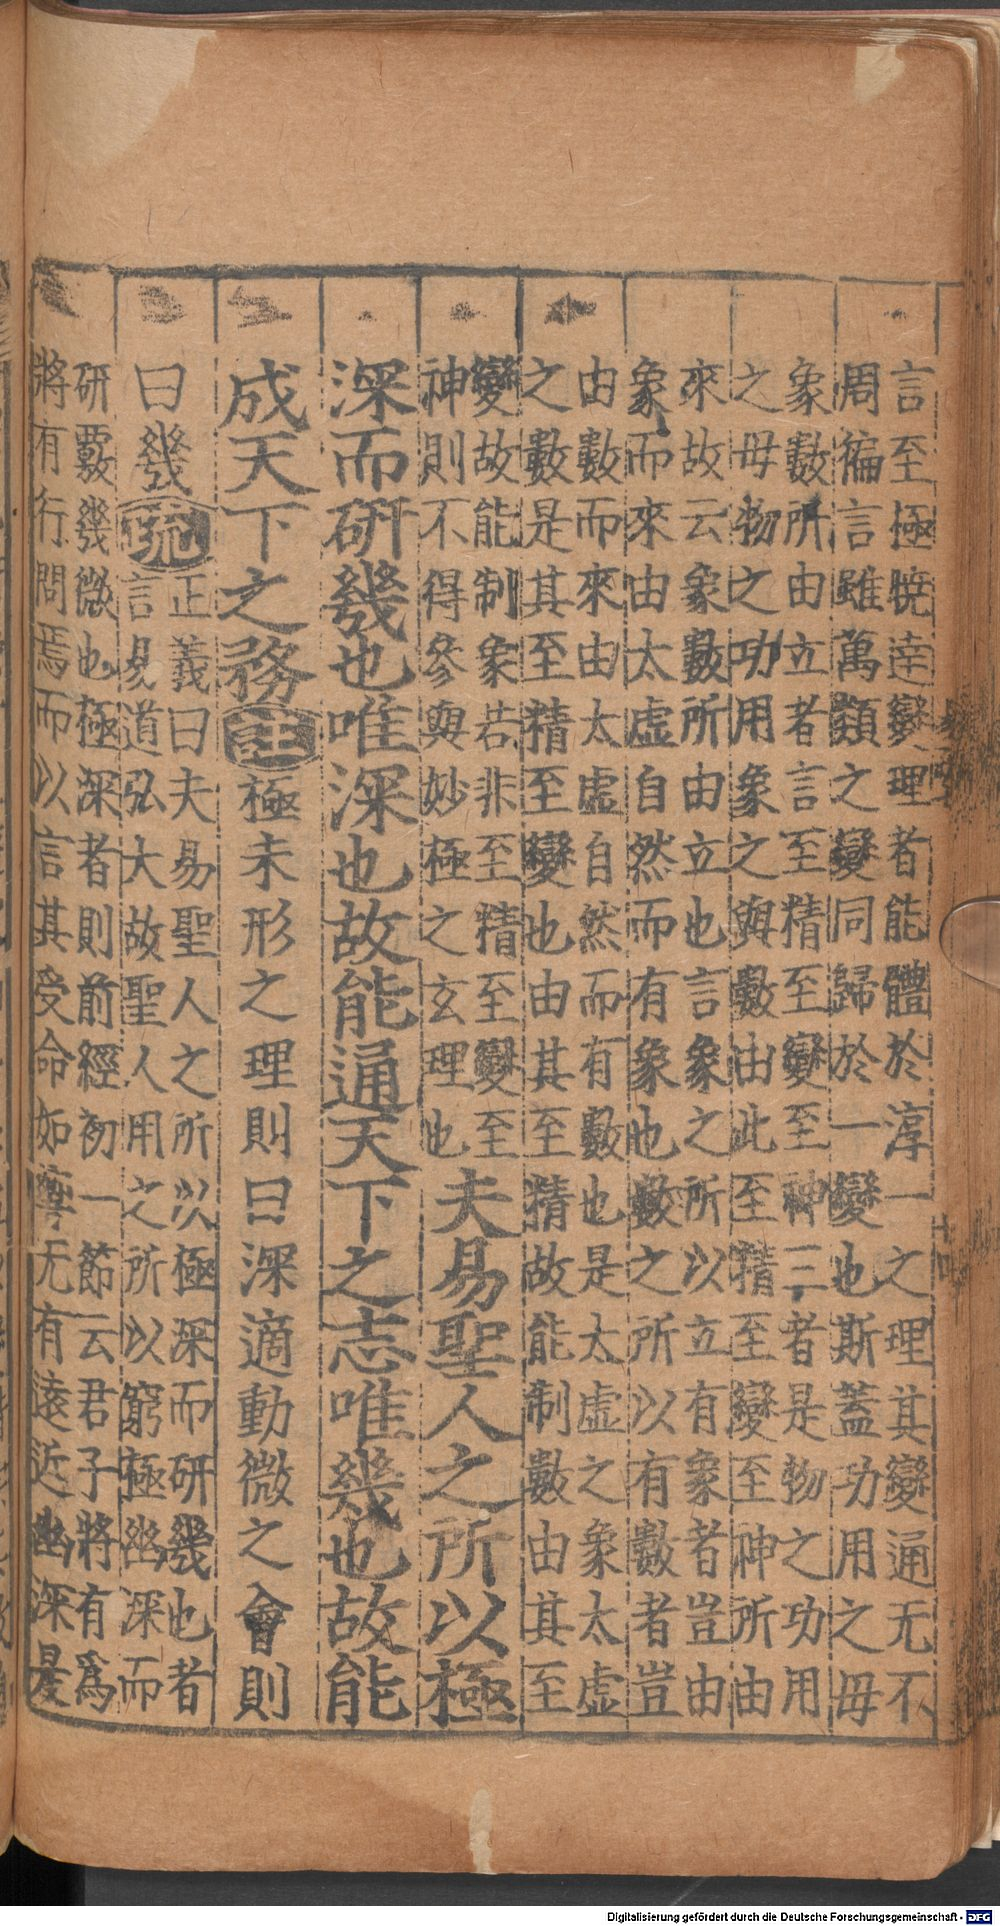 言至極曉達變理者能體於淳一之理其變通无不
周徧言雖萬類之變同歸於一變也斯蓋功用之母
象數所由立者言至精至變至神三者是物之功用
之母物之功用象之與數由此至精至變至神所由
來故云象數所由立也言象之所以立有象者豈由
象而來由太虛自然而有象也數之所以有數者豈
由數而來由太虛自然而有數也是太虛之象太虛
之數是其至精至變也由其至精故能制數由其至
變故能制象若非至精至變至
神則不得參與妙極之玄理也
夫易聖人之所以極
深而研幾也唯深也故能通天下之志唯幾也故能
成天下之務註極未形之理則曰深適動微之會則
曰幾疏
正義曰夫易聖人之所以極深而研幾也者
言易道弘大故聖人用之所以窮極幽深而
研覈幾微也極深者則前經初一節云君子將有爲
將有行問焉而以言其受命如嚮无有遠近幽深是
Digitalisierung gefördert durch die Deutsche Forschungsgemeinschaft - DFG